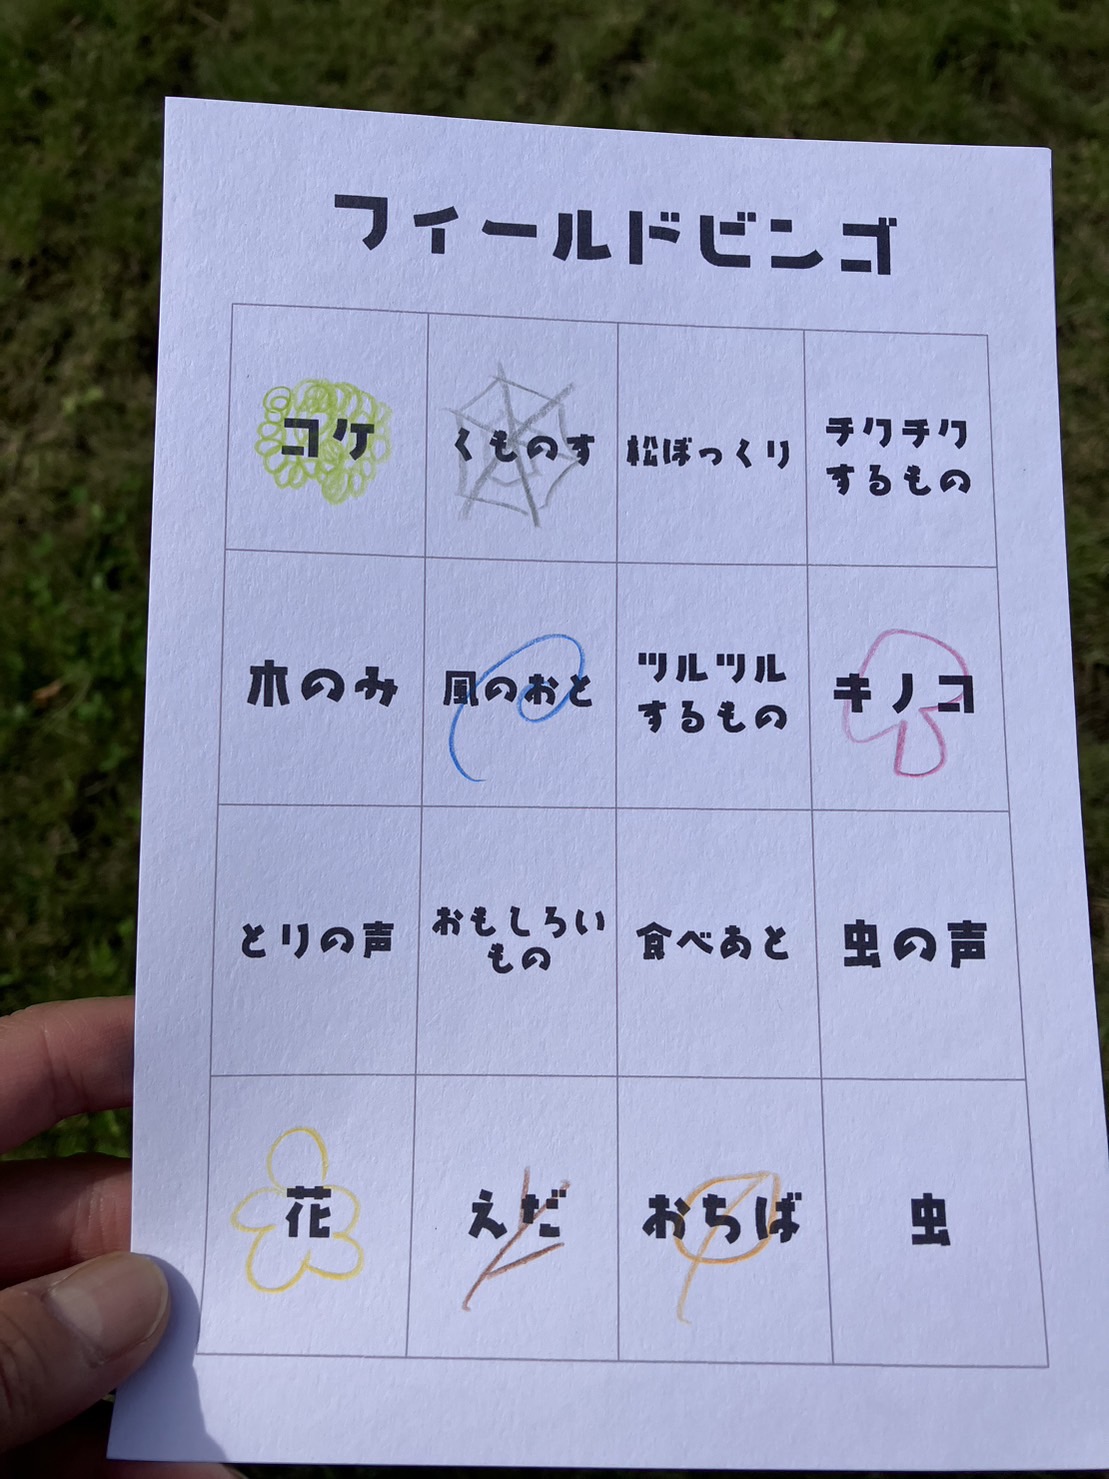 フィールドビンゴ
コケ
くものす
松ぼっくり
チクチク
するもの
木のみ
風のおと
ツルツル
するもの
キノコ
とりの声
おもしろい
もの
食べあと
虫の声
花
えだ
おちば
虫